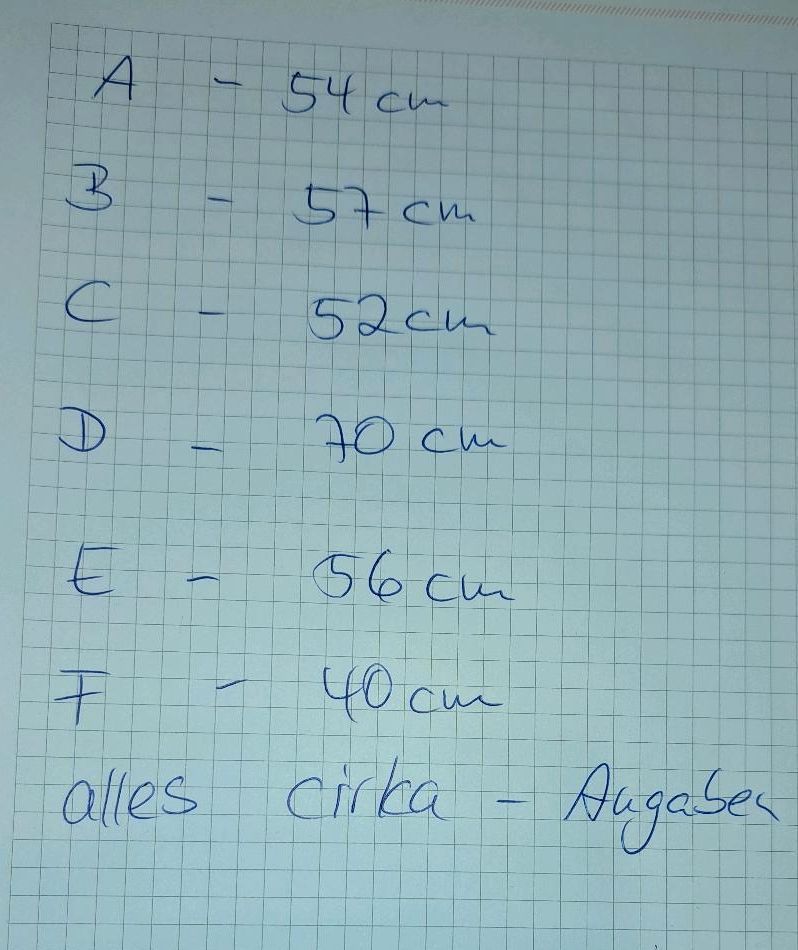 A - 54 cm
B - 57 cm
C - 52 cm
D - 70 cm
E - 56 cm
F - 40 cm
alles cirka - Angaben